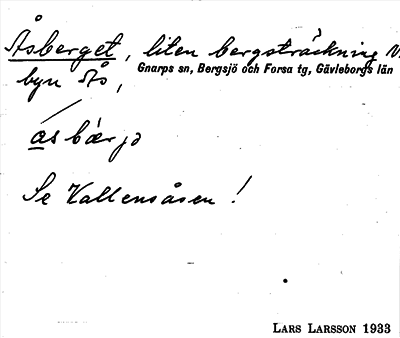 Åsberget, liten bergsträckning V.
Gnarps sn, Bergsjö och Forsa tg, Gävleborgs län
byn Ås,
Se Vallensåsen!
LARS LARSSON 1933